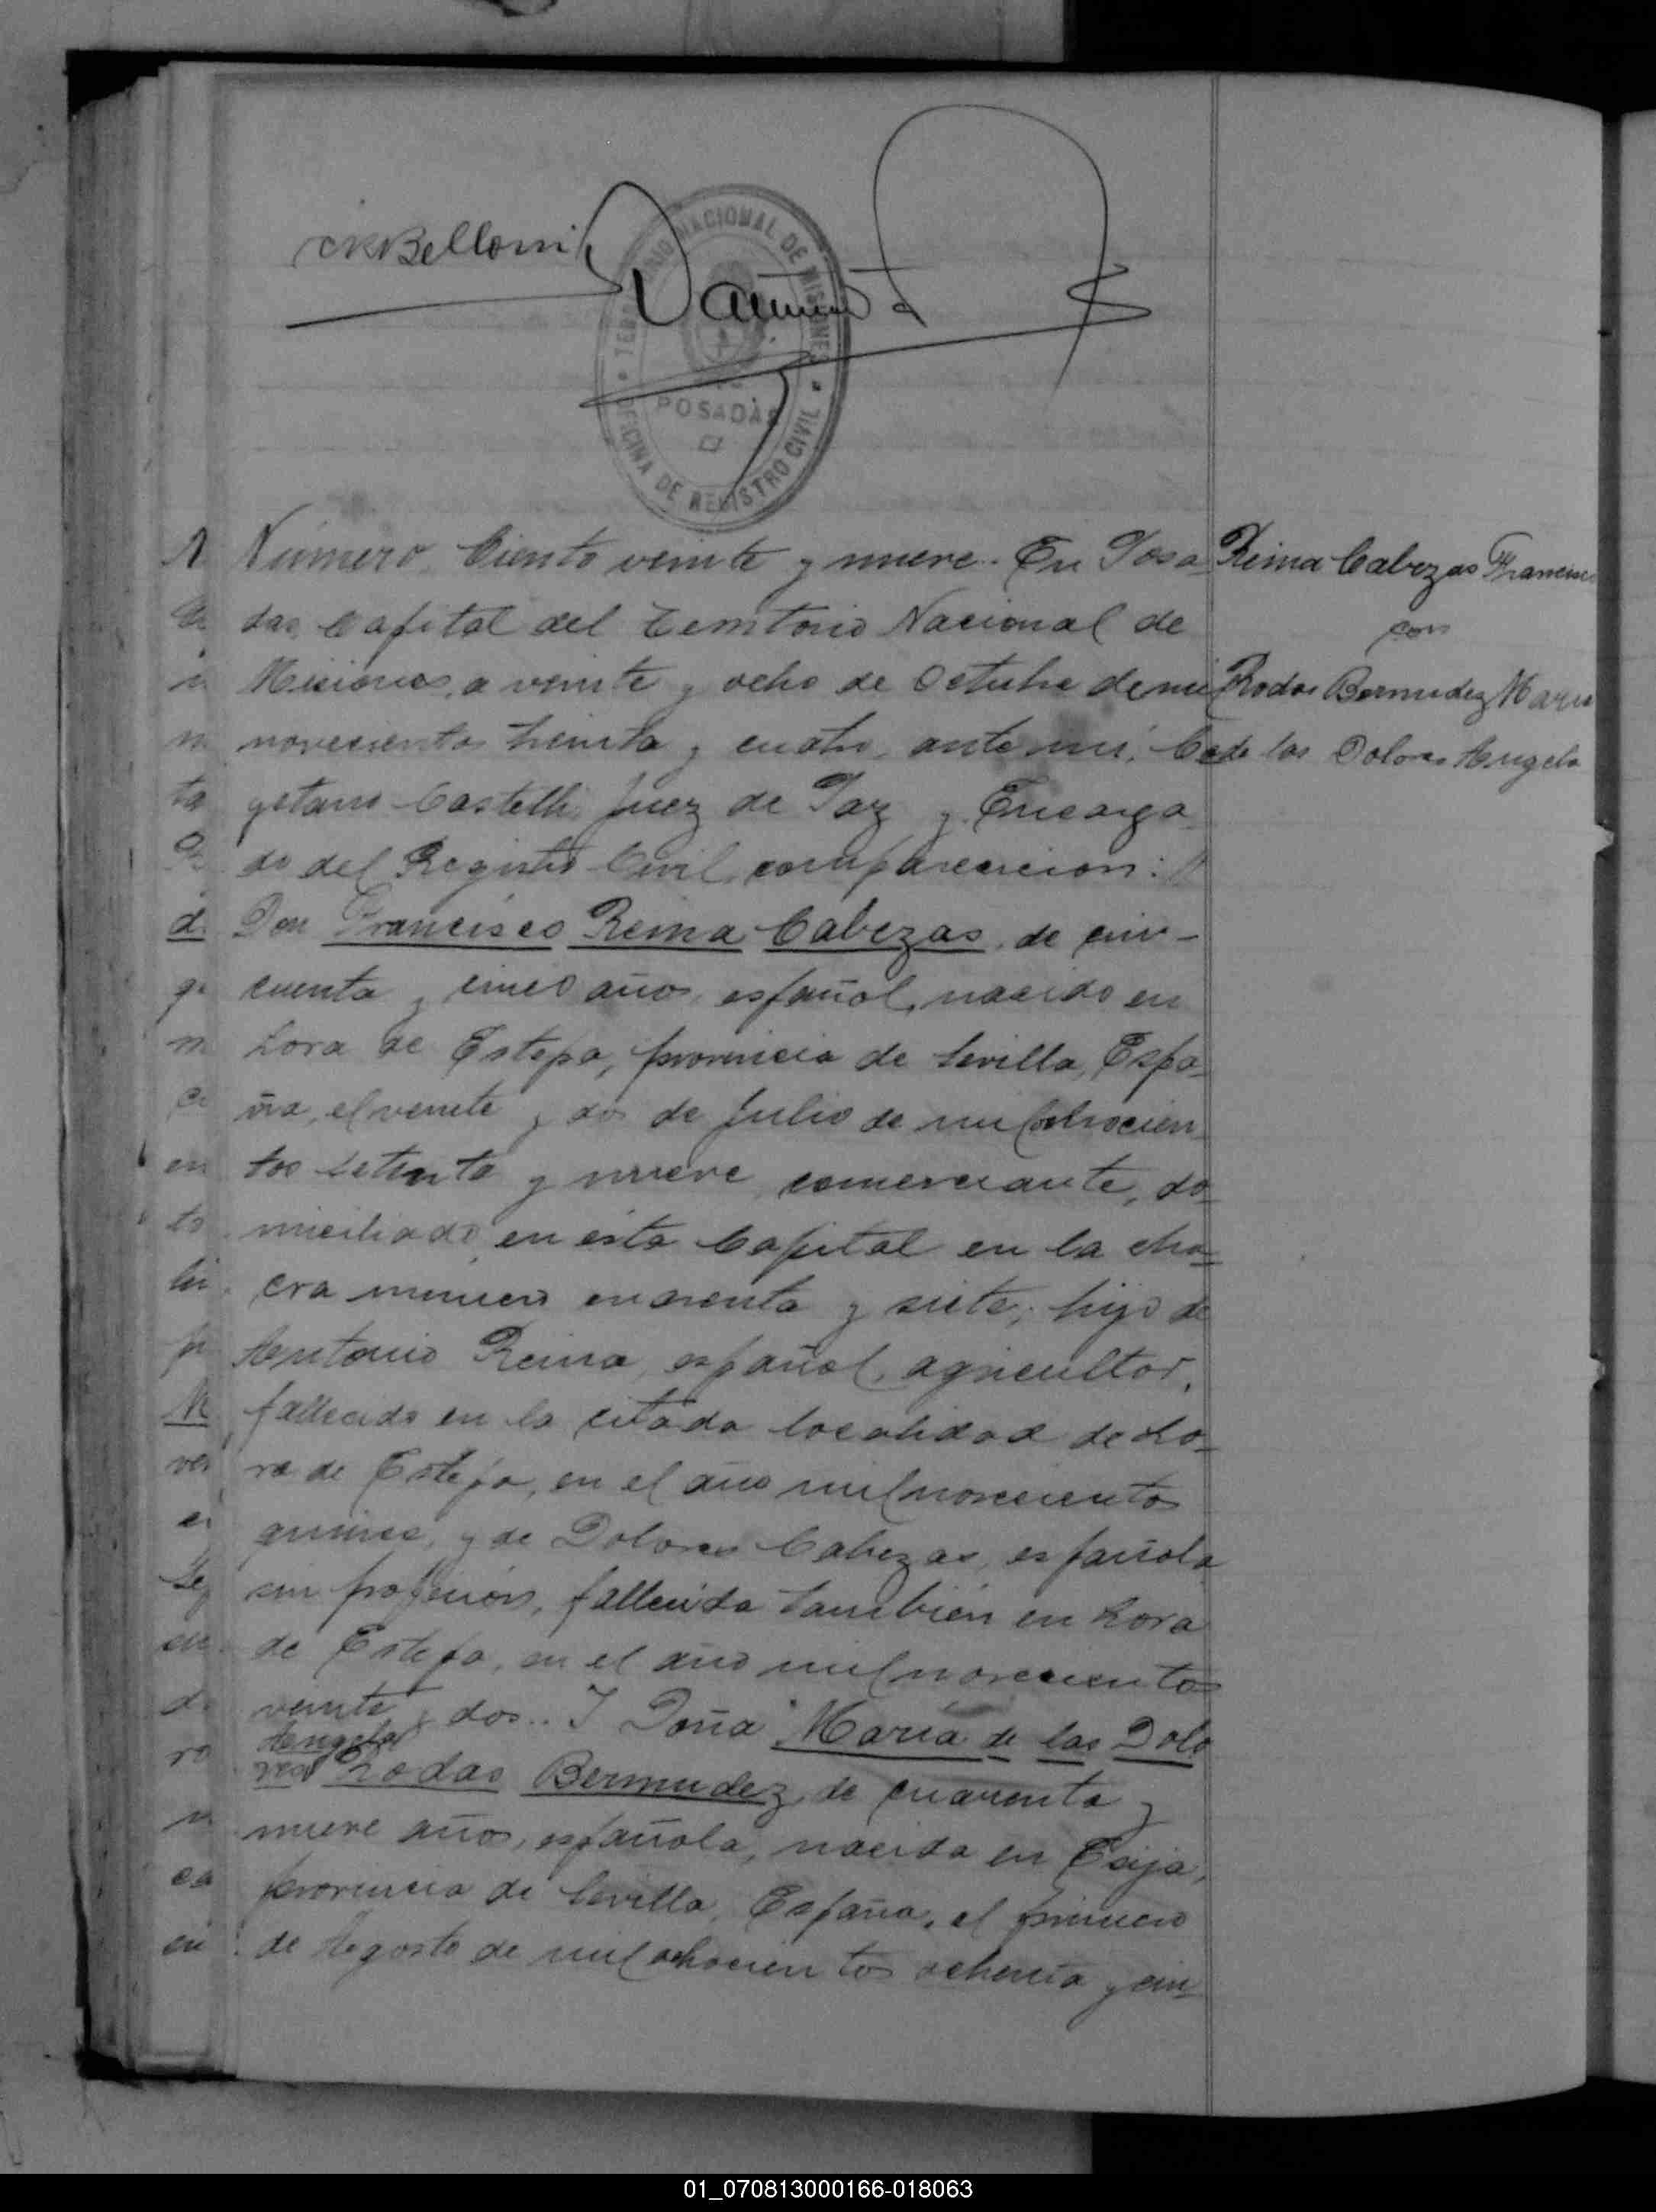 Belloni
TERRITORIO NACIONAL DE MISIONES
POSADAS
OFICINA DE REGISTRO CIVIL
Reina Cabezas Francisco
con
Rodas Bermudez Maria
de las Dolores Angela
Número Ciento veinte y nueve.. En Posa-
das, Capital del Territorio Nacional de
Misiones, a veinte y ocho de Octubre de mil
novecientos treinta y cuatro, ante mí, Ca-
yetano Castelli, Juez de Paz y Encarga-
do del Registro Civil, comparecieron:
Don Francisco Reina Cabezas, de cin-
cuenta y cinco años, español, nacido en
Lora de Estepa, provincia de Sevilla, Espa-
ña, el veinte y dos de Julio de mil ochocien-
tos setenta y nueve, comerciante, do-
miciliado en esta Capital en la cha-
cra número cuarenta y siete; hijo de
Antonio Reina, español, agricultor,
fallecido en la citada localidad de Lo-
ra de Estepa, en el año mil novecientos
quince, y de Dolores Cabezas, española
sin profesión, fallecida también en Lora
de Estepa, en el año mil novecientos
veinte y dos.. Y Doña María de las Dolo
Angela
res Rodas Bermudez, de cuarenta y
nueve años, española, nacida en Ecija,
provincia de Sevilla, España, el primero
de Agosto de mil ochocientos ochenta y cin-
01_070813000166-018063